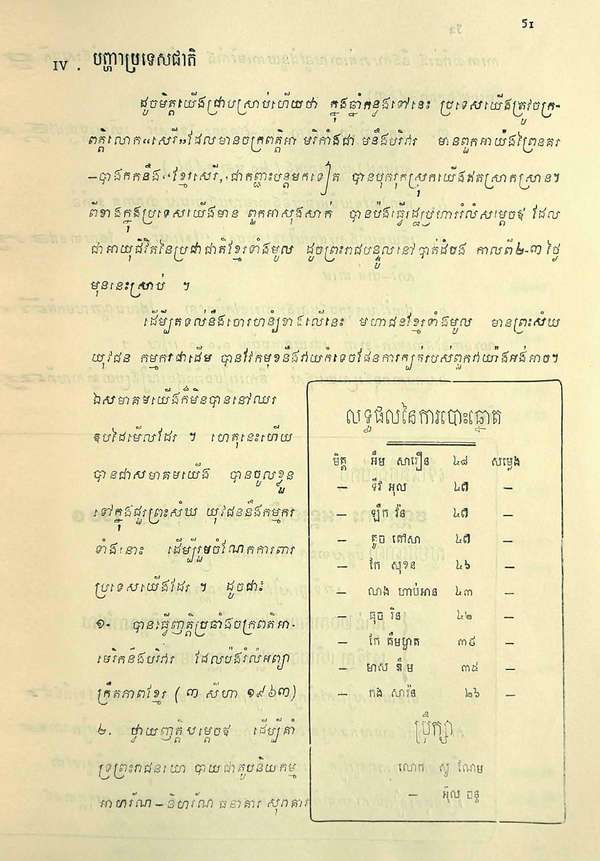 51
IV . បញ្ហាប្រទេសជាតិ
ដូចមិត្តយើងជ្រាបស្រាប់ហើយថា ក្នុងឆ្នាំកន្លងទៅនេះ ប្រទេសយើងត្រូវចក្រ-
ពត្តិលោក«សេរី»ដែលមានចក្រពត្តិអាមេរិកាំងជា មនឹងបរិវារ មានពួកអាយ៉ងព្រៃនគរ
–បាងកកនឹង«ខ្មែរសេរី»ជាកញ្ជះបន្តមកទៀត បានបុករុកស្រុកយើងឥតស្រាកស្រាន។
ពីខាងក្នុងប្រទេសយើងមាន ពួកអាសុងសាក់ បានប៉ងធ្វើរដ្ឋប្រហាររំលំសម្តេចឪ ដែល
ជាអាយុជីវិតនៃប្រជាជាតិខ្មែរទាំងមូល ដូចព្រះរាជបន្ទូលនៅបាត់ដំបង កាលពី២-៣ ថ្ងៃ
មុននេះស្រាប់ ។
ដើម្បីតទល់នឹងចោរហន្បំខាងលើនេះ មហាជនខ្មែរទាំងមូល មានព្រះសង្ឃ
យុវជន កម្មករជាដើម បានវែកមុខនឹងវាយកំទេចផែនការក្បត់របស់ពួកវាយ៉ាងអង់អាច។
ឯសមាគមយើងក៏មិនបាននៅឈរ
ឱបដៃមើលដែរ ។ ហេតុនេះហើយ
បានជាសមាគមយើង បានចូលខ្លួន
ទៅក្នុងជួរព្រះសង្ឃ យុវជននឹងកម្មករ
ទាំងនោះ ដើម្បីរួមចំណែកការពារ
ប្រទេសយើងដែរ ។ ដូចជាៈ
១- បានធ្វើញត្តិប្រឆាំងចក្រពត្តិអា-
មេរិកនឹងបរិវារ ដែលប៉ងរំលំអព្យា
ក្រឹតភាពខ្មែរ ( ៣ សីហា ១៩៦៣)
២. ថ្វាយញត្តិសម្តេចឪ ដើម្បីគាំ
ទ្រព្រះរាជនយោបាយជាតូបនីយកម្ម
អាហរ័ណ–និហរ័ណ ធនាគារ សុរាគារ
លទ្ធផលនៃការបោះឆ្នោត
មិត្ត អឹម សារឿន ៤៨ សម្លេង
— ទីវ អុល ៤៧ —
— ឡឹក វ៉ន ៤៧ —
— តូច កៅសា ៤៧ —
— កែ សុខន ៤៦ —
— ណង ហាប់អាន ៤៣ —
— ធុច រិន ៤២ —
— កែ គឹមហួត ៣៨ —
— មាស ឌឹម ៣៥ —
— កង សារ៉ន ២៦ —
ប្រឹក្សា
លោក សូ ណែម
— អ៊ុល ចន្ទ